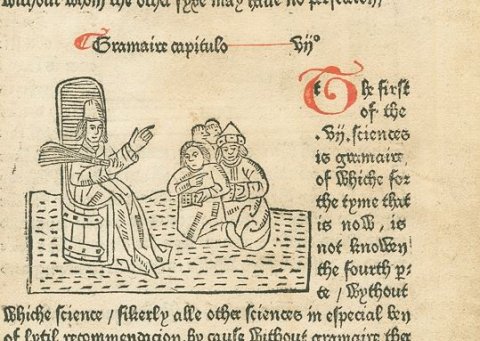 without whom the other syde may haue no perfeccion /
Gramaire capitulo vijº
The first
of the
.vij. sciences
is gramaire,
of whiche for
the tyme that
is now, is
not knowen
the fourth p̱-
te / wythout
whiche science / sikerly alle other sciences in especial ben
of lytil recommendacion, by cause without gramaire ther